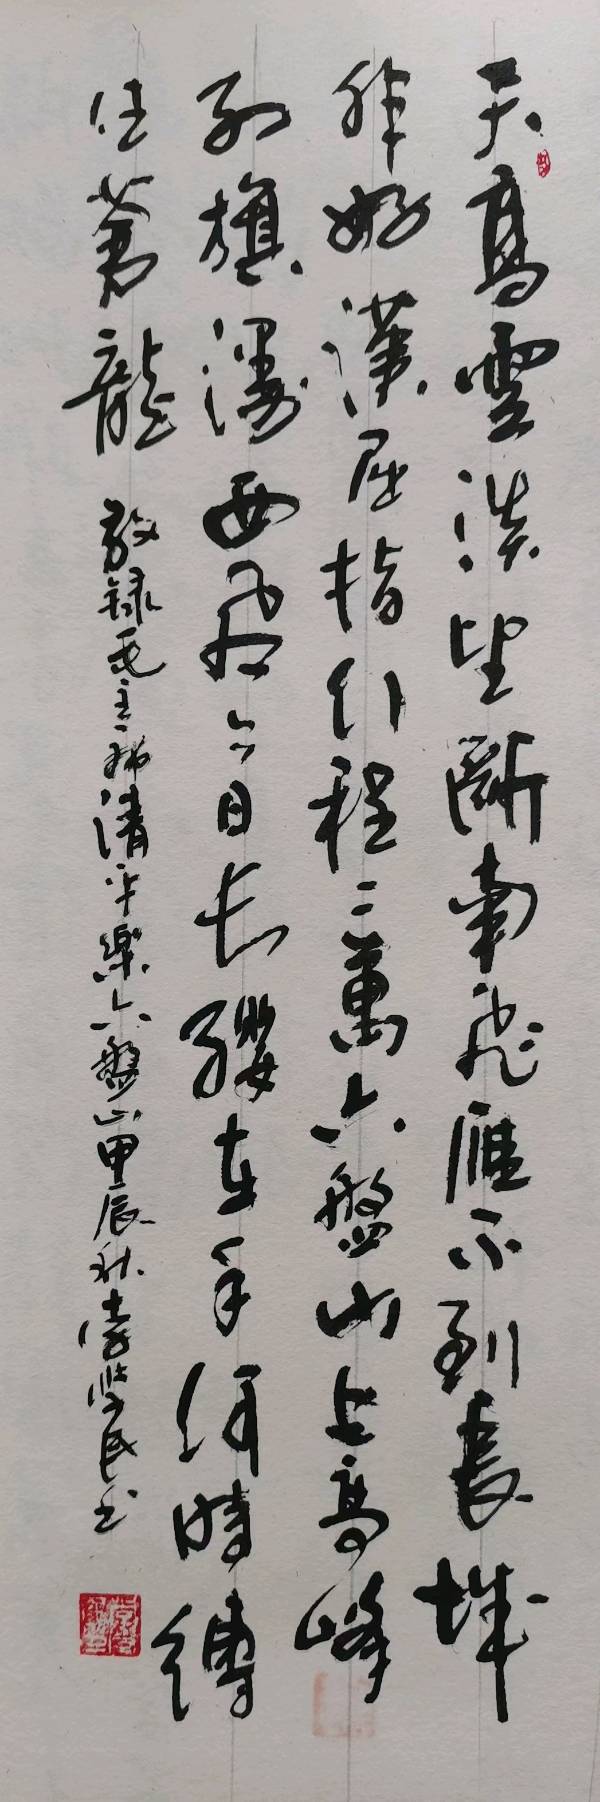 天高雲淡望斷南飛雁不到長城
非好漢屈指行程二萬六盤山上高峰
紅旗漫西風今日長纓在手何時縛
住蒼龍
敬録毛主席清平樂六盤山甲辰秋李學民书